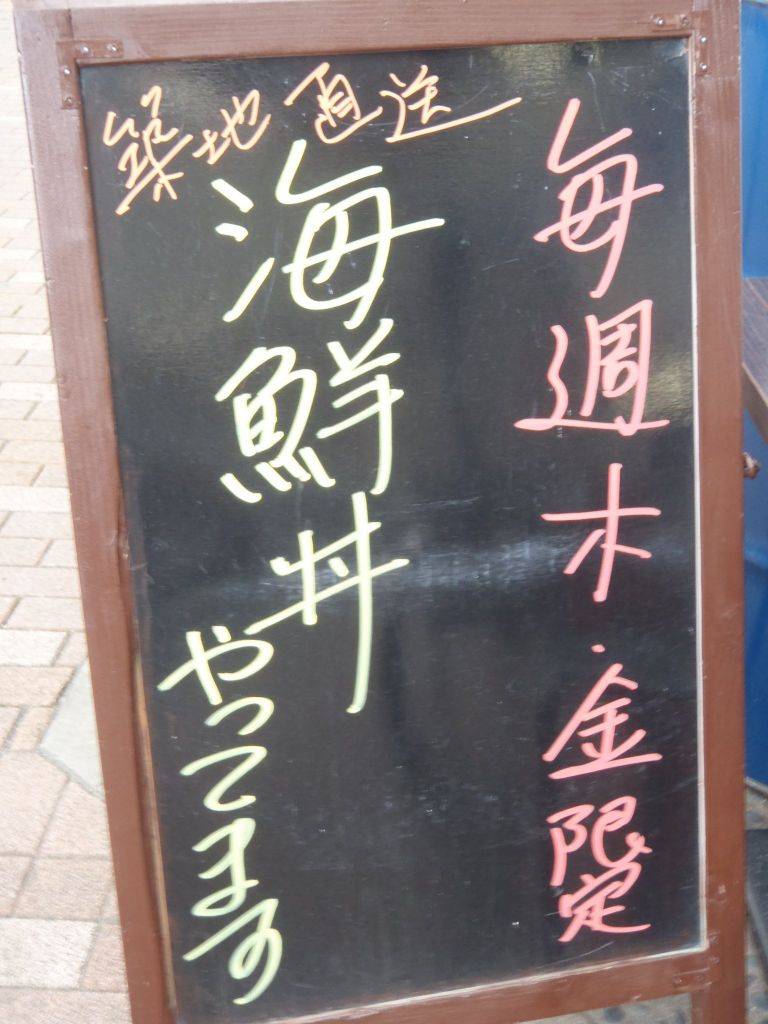 毎週木・金限定
築地直送
海鮮丼
やってます